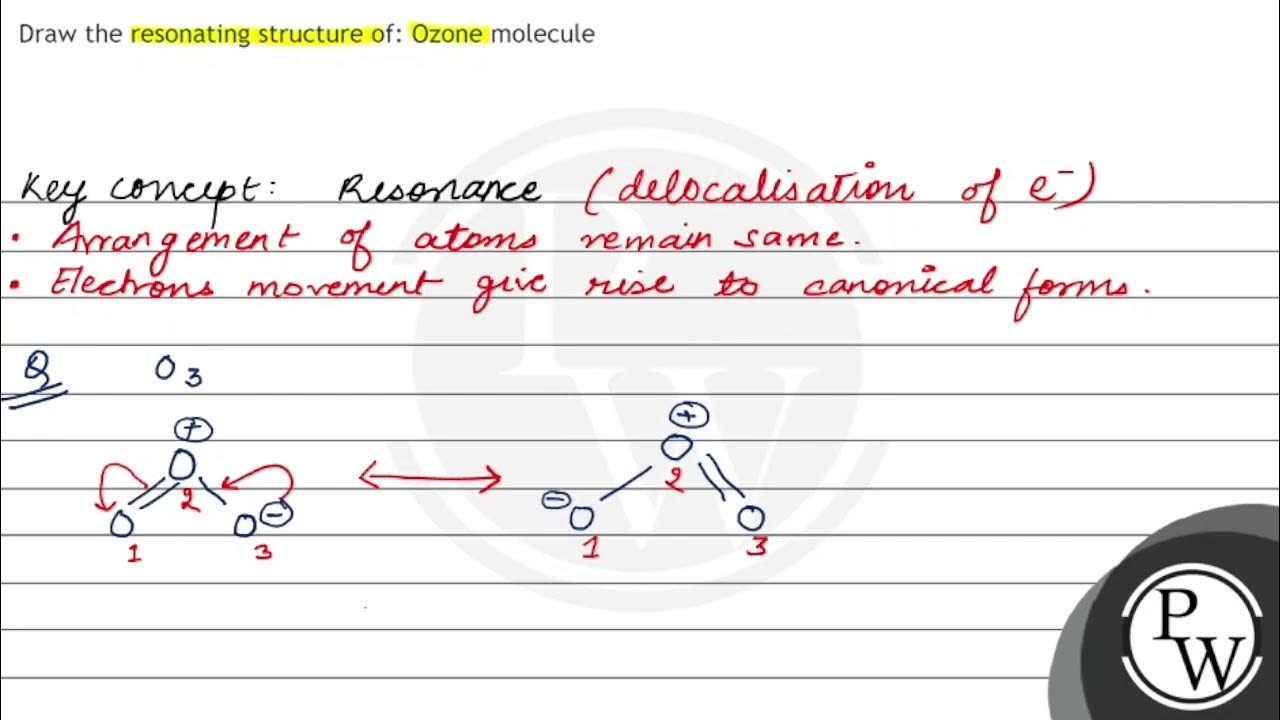 Draw the resonating structure of: Ozone molecule
Key concept: Resonance (delocalisation of e⁻)
• Arrangement of atoms remain same.
• Electrons movement give rise to canonical forms.
Q O3
+ +
O O
2 2
O O − − O O
1 3 1 3
PW
PW